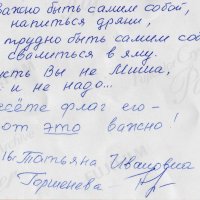 важно быть самим собой,
напиться дряни,
трудно быть самим соб
свалиться в яму.
усть Вы не Миша,
и не надо...
сёте флаг его-
от это важно!
Татьяна Ивановна
Горшенева